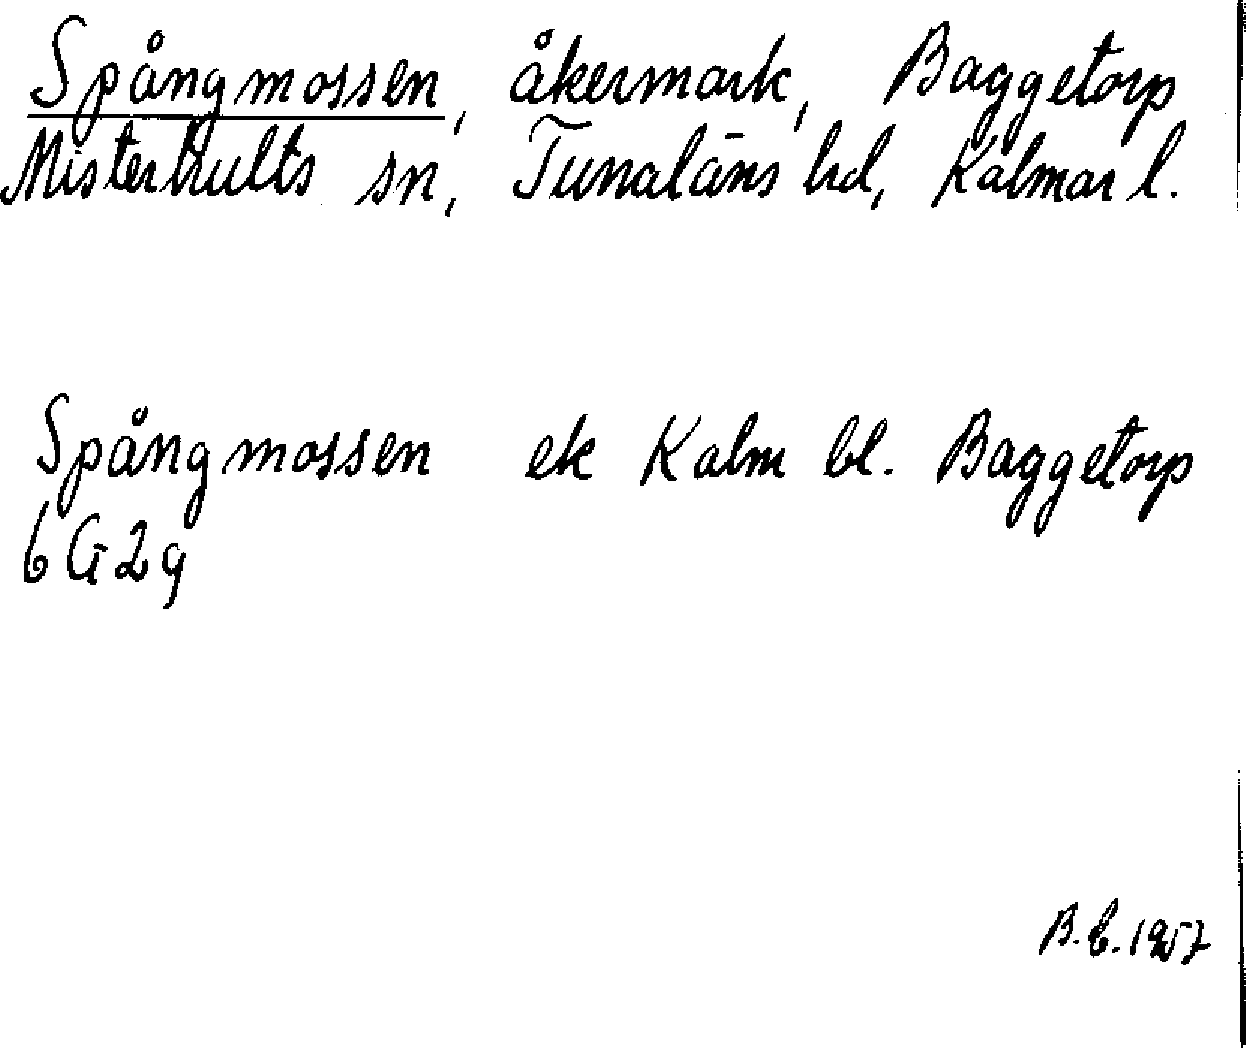 Spångmossen, åkermark, Baggetorp
Misterhults sn, Tunaläns hd, Kalmar l.
Spångmossen ek Kalm bl. Baggetorp
6G2g
B.C. 1957